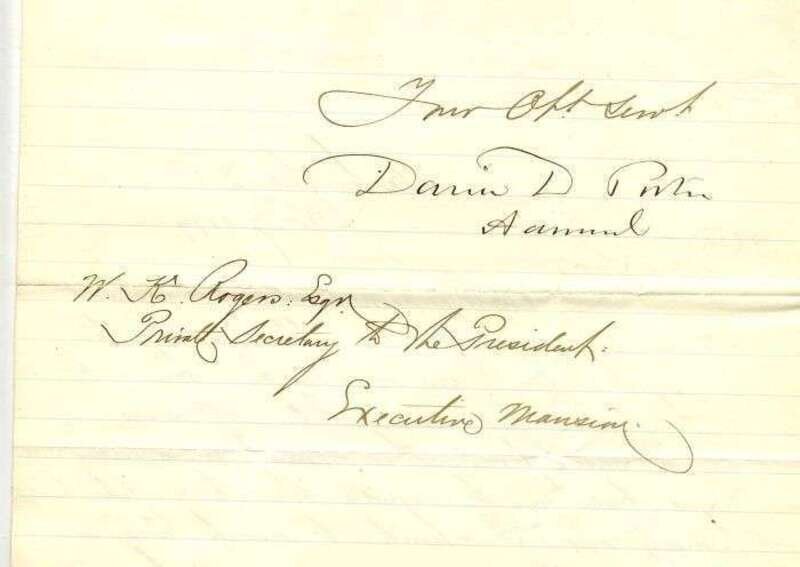 Your Obt. Servt
David D Porter
Admiral
W. K. Rogers. Esqr.
Private Secretary to the President.
Executive Mansion.